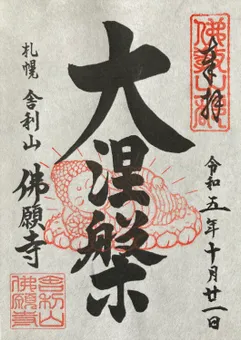 奉拝
令和五年十月廿一日
大涅槃
札幌 舎利山
佛願寺
舎利山
佛願寺